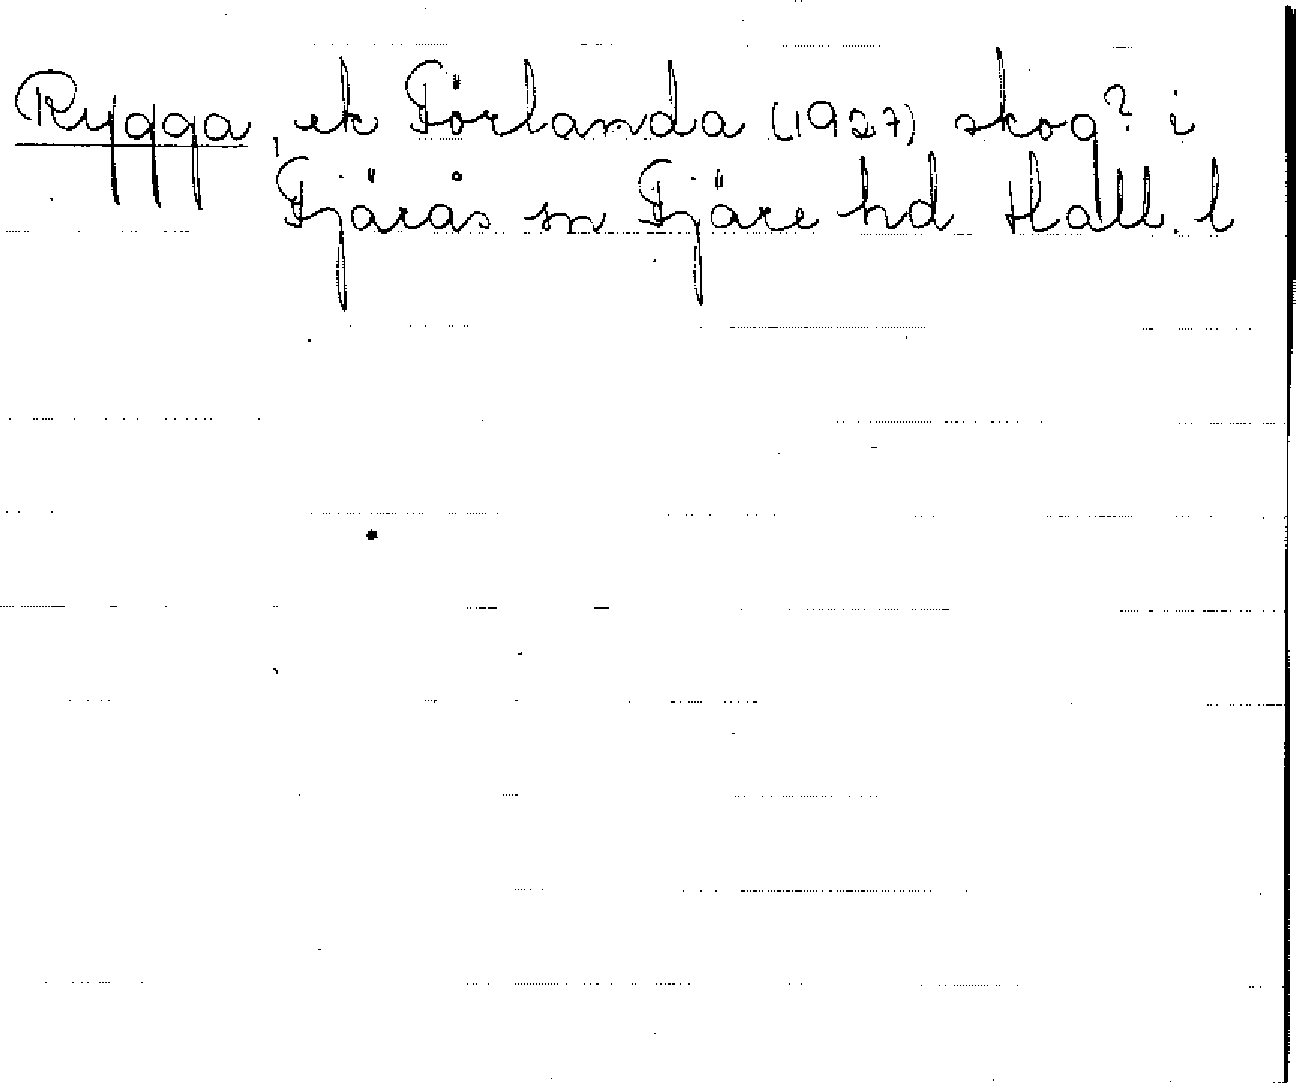 Rygga, ek Förlanda (1927) skog? i
Fjärås sn Fjäre hd Hall. l